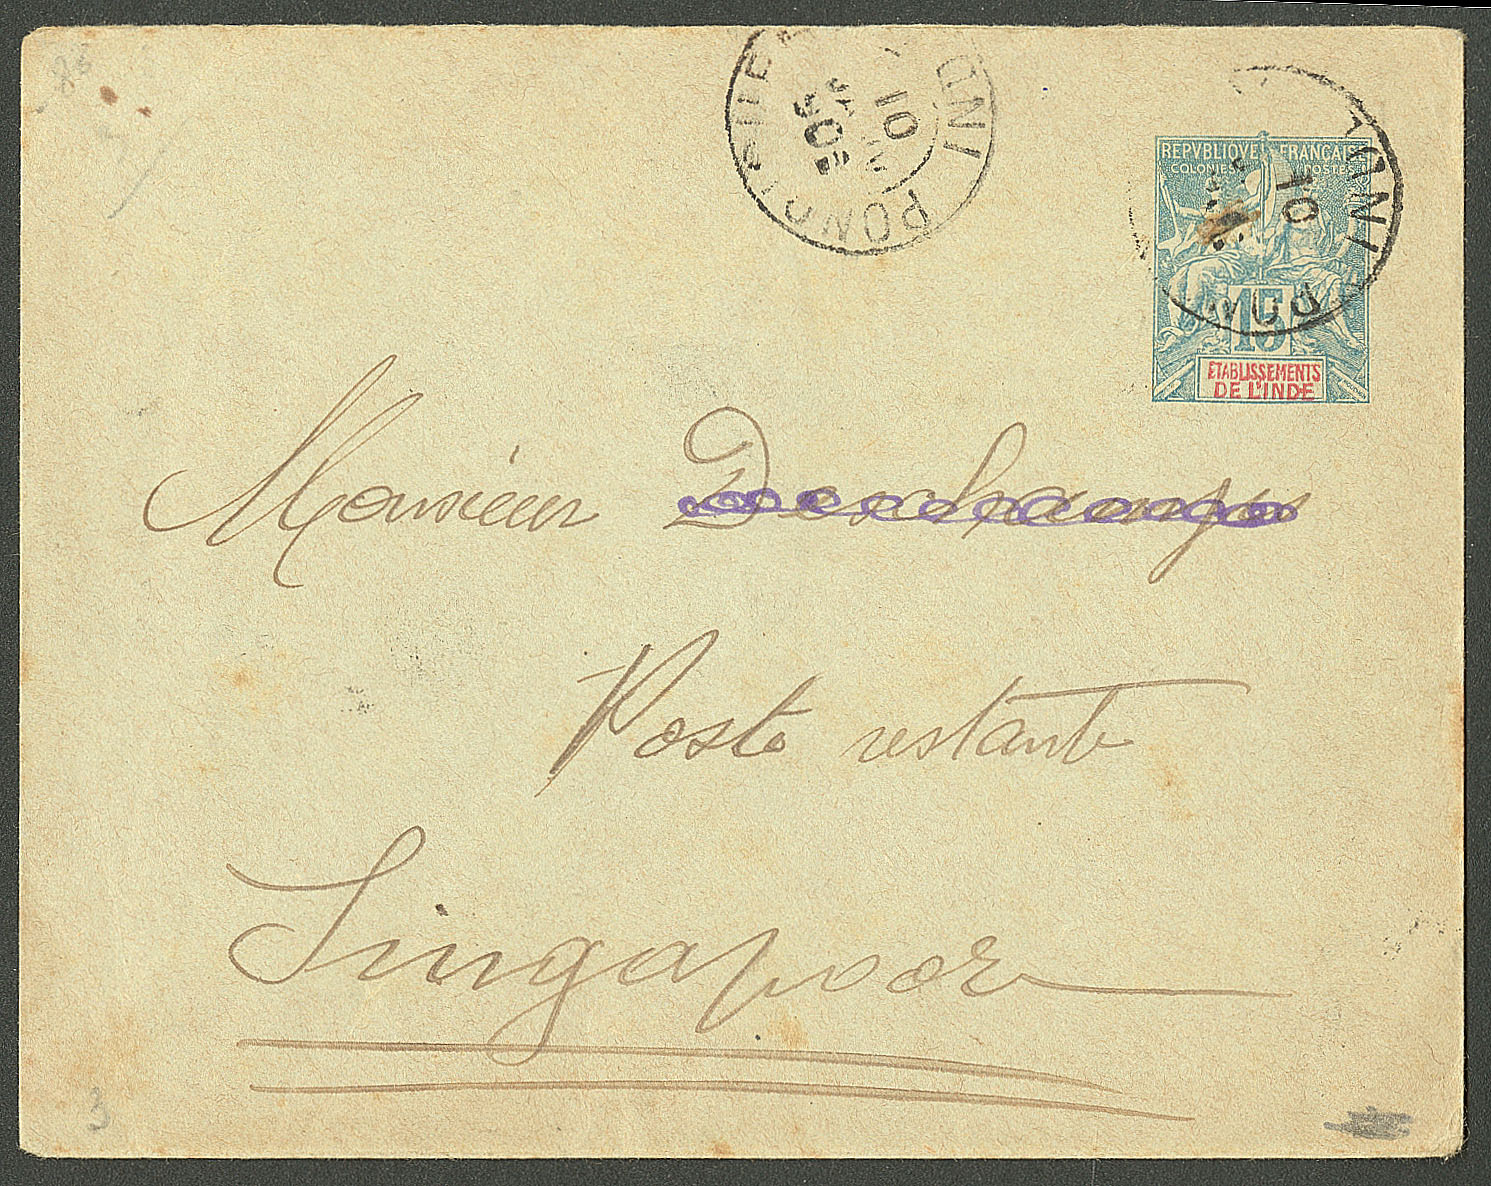 PONDICHERY
INDE
10
REPVBLIQVE FRANÇAISE
COLONIES POSTES
INDE
10
PON
15
ETABLISSEMENTS
DE L'INDE
Monsieur Deschamps
Poste restante
Singapore
3